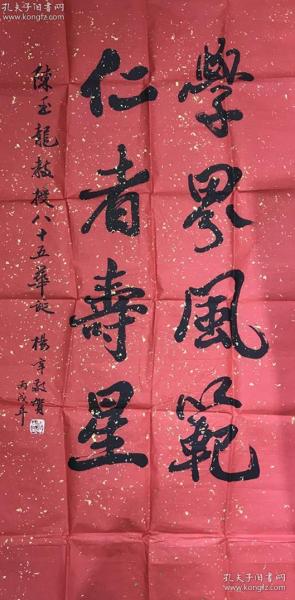 學界風範
仁者壽星
陳玉龍教授八十五華誕 楊辛敬賀
丙戌年
孔夫子旧书网
www.kongfz.com
孔夫子旧书网
www.kongfz.com